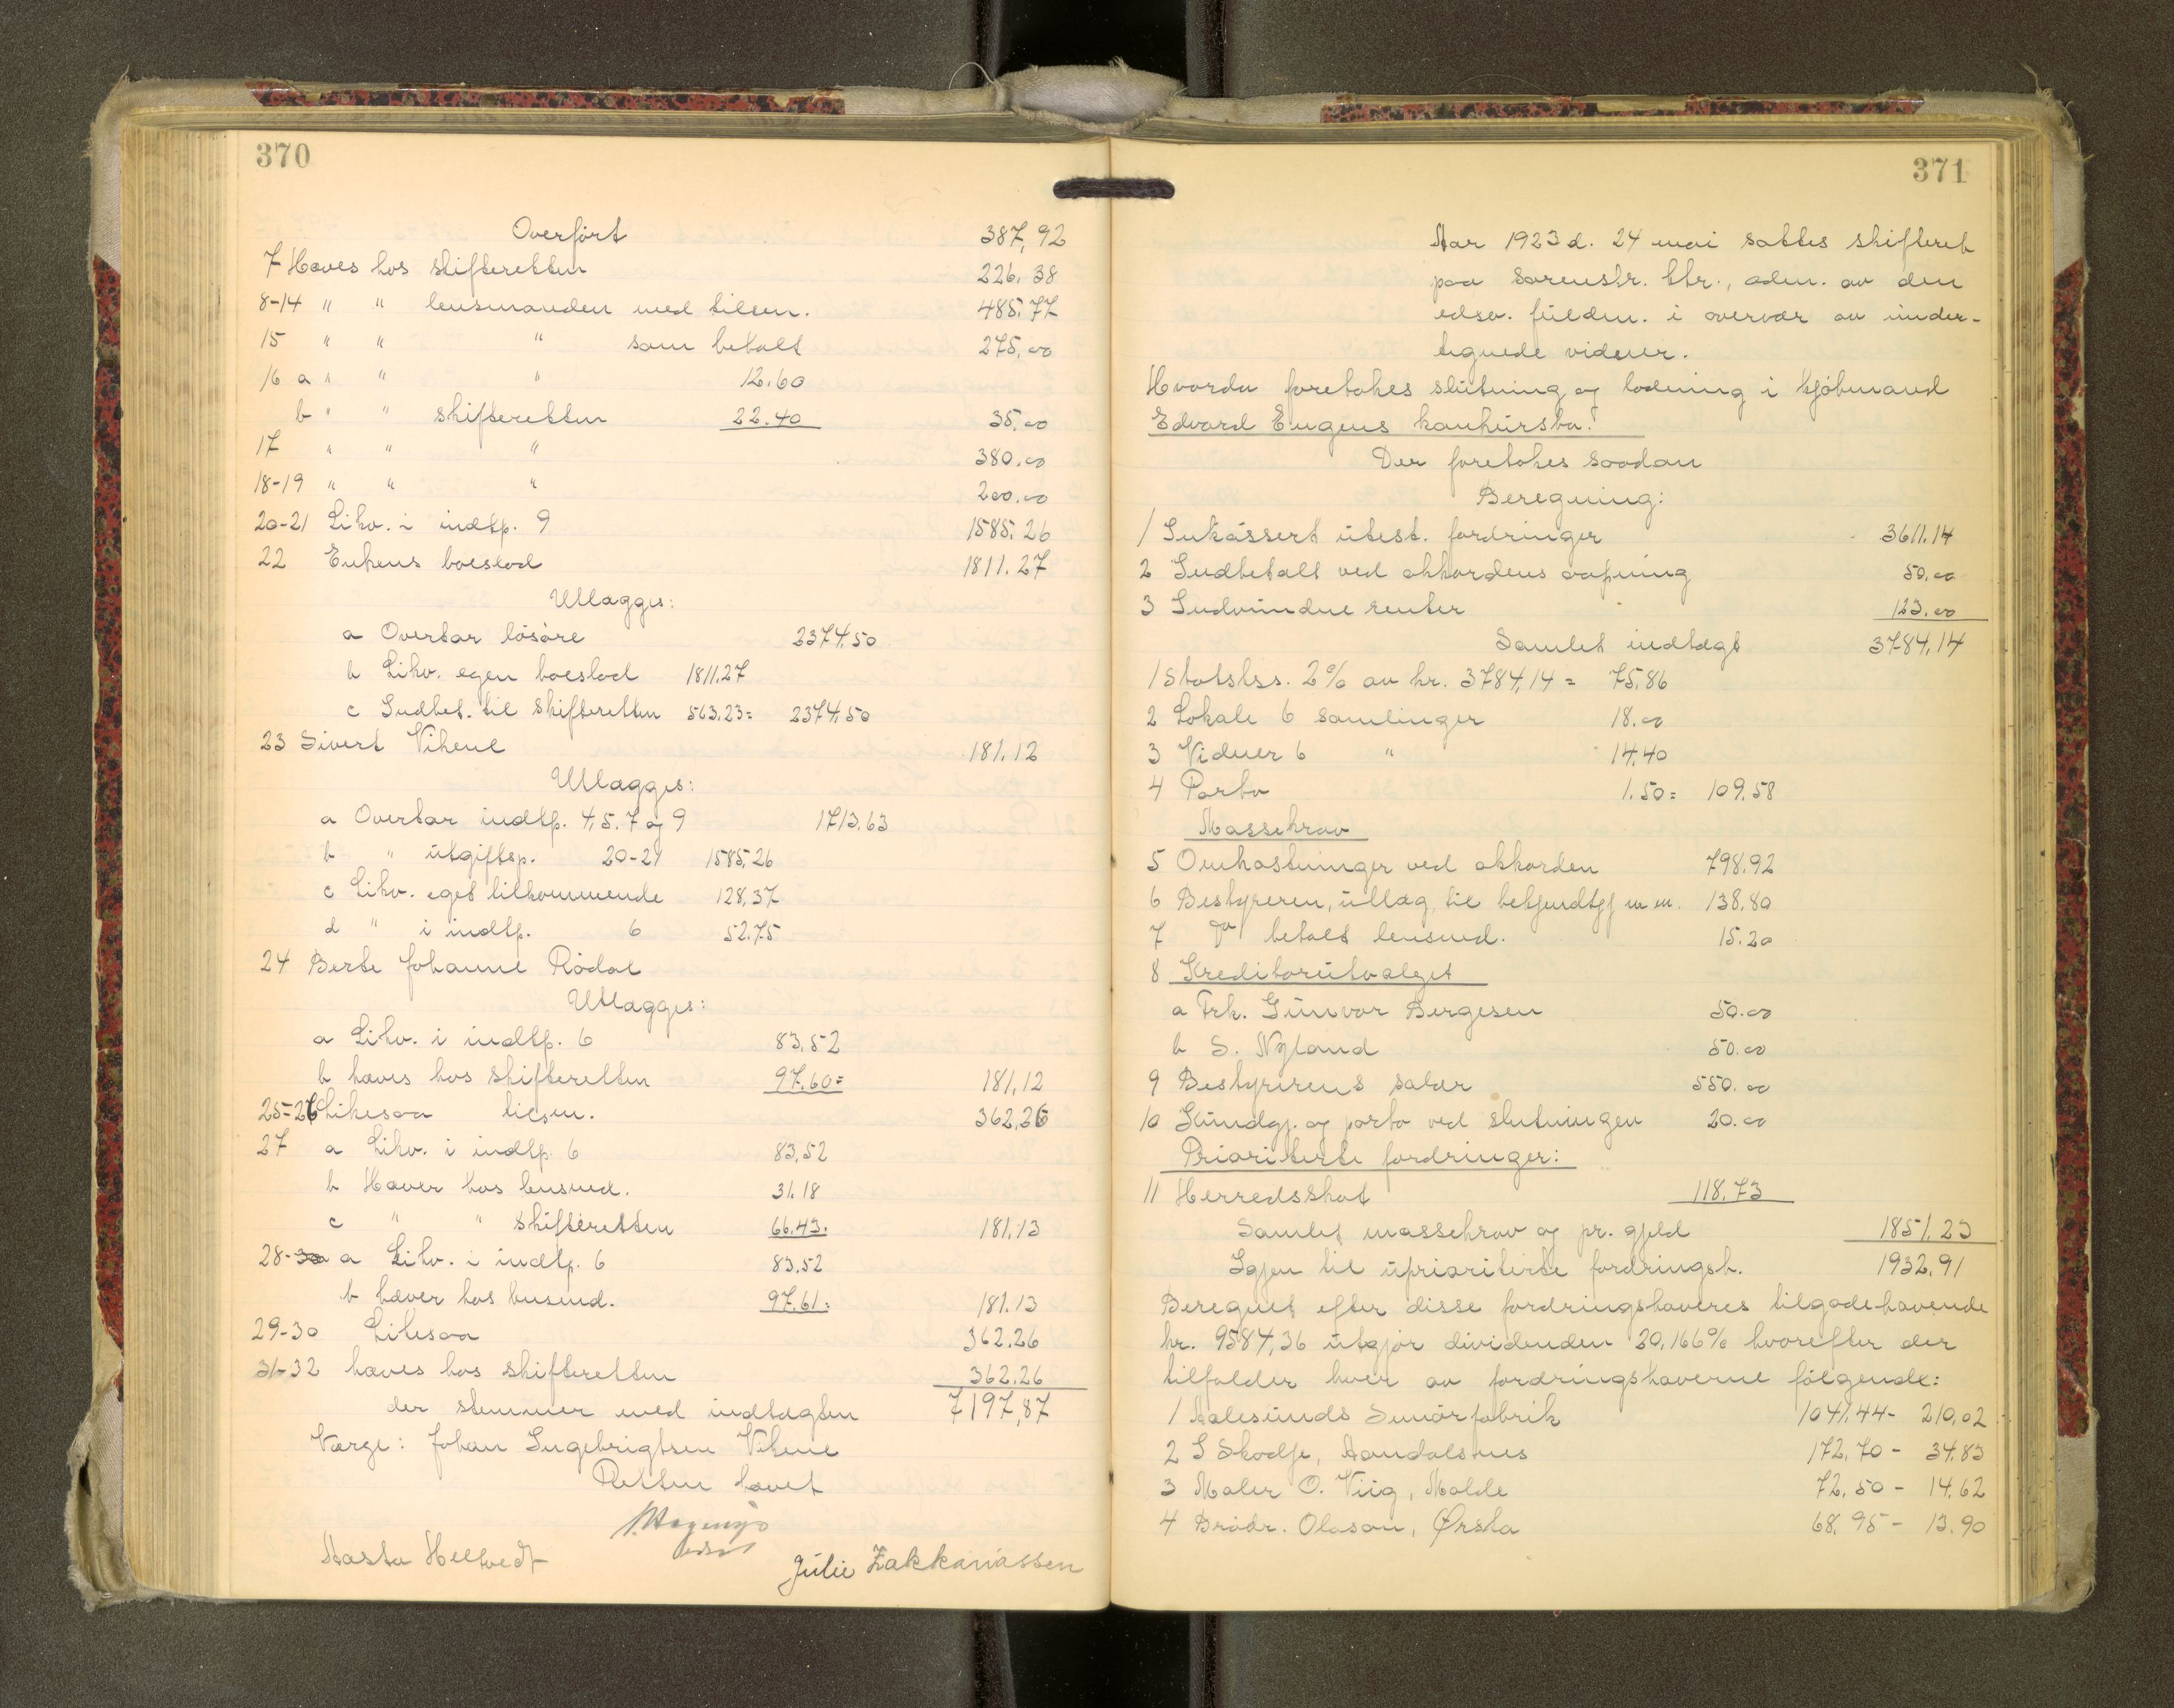 370
Overført 387,92
7 Hæves hos skifteretten 226,38
8-14 " " lensmanden med tilsm. 485,77
15 " " " som betalt 275,00
16 a " " " 12.60
b " " skifteretten 22.40 35,00
17 " " " 380.00
18-19 " " " 200.00
20-21 Likv. i indtp. 9 1585,26
22 Enkens boeslod 1811.27
Utlægges:
a Overtar løsøre 2374,50
b Likv. egen boeslod 1811,27
c Indbet. til skifteretten 563,23 = 2374,50
23 Sivert Vikene 181,12
Utlægges:
a Overtar indtp. 4,5.7 og 9 1713,63
b " utgiftsp. 20-21 1585,26
c Likv. eget tilkommende 128,37
d " i indtp. 6 52.75
24 Berte Johanne Rødal
Utlægges:
a Likv. i indtp. 6 83,52
b hæves hos skifteretten 97,60 = 181,12
25-26 Likesaa tilsm. 362,26
27 a Likv. i indtp. 6 83,52
b Hæver hos lensmd. 31.18
c " " skifteretten 66.43. 181,13
28 a Likv. i indtp. 6 83,52
b hæver hos lensmd. 97,61: 181.13
29-30 Likesaa 362.26
31-32 hæves hos skifteretten 362.26
der stemmer med indtægten 7197,87
Værge: Johan Ingebrigtsen Vikene
Retten hævet
Aasta Helltvedt Julie Zakkariassen
371
Aar 1923 d. 24 mai sattes skifteret
paa sorenskr. ktr., adm. av den
edsv. fuldm. i overvær av under-
tegnede vidner.
Hvorda foretokes slutning og lodning i kjøbmand
Edvard Eugens konkursbo.
Der foretokes saadan
Beregning:
1 Inkassert utest. fordringer 3611.14
2 Indbetalt ved akkordens aapning 50.00
3 Indvundne renter 123.00
Samlet indtægt 3784,14
1 Statskss. 2% av kr. 3784,14 = 75,86
2 Lokale 6 samlinger 18.00
3 Vidner 6 " 14,40
4 Porto 1.50 = 109,58
Massekrav
5 Omkostninger ved akkorden 798,92
6 Bestyreren, utlæg til bekjendtgj m m. 138,80
7 Do betalt lensmd. 15.20
8 Kreditorutvalget
a Frk. Gunvor Bergesen 50.00
b S. Nyland 50.00
9 Bestyrerens salær 550.00
10 Kundgj. og porto ved slutningen 20.00
Prioriterte fordringer:
11 Herredsskat 118,73
Samlet massekrav og pr. gjeld 1851,23
Igjen til uprioriterte fordringsh. 1932,91
Beregnet efter disse fordringshaveres tilgodehavende
kr. 9584,36 utgjør dividenden 20,166% hvorefter der
tilfalder hver av fordringshaverne følgende:
1 Aalesunds Smørfabrik 1041.44 - 210,02
2 I Skodje, Aandalsnes 172,70 - 34,83
3 Maler O. Viig, Molde 72,50 - 14,62
4 Brødr. Olason, Ørsta 68,95 - 13.90